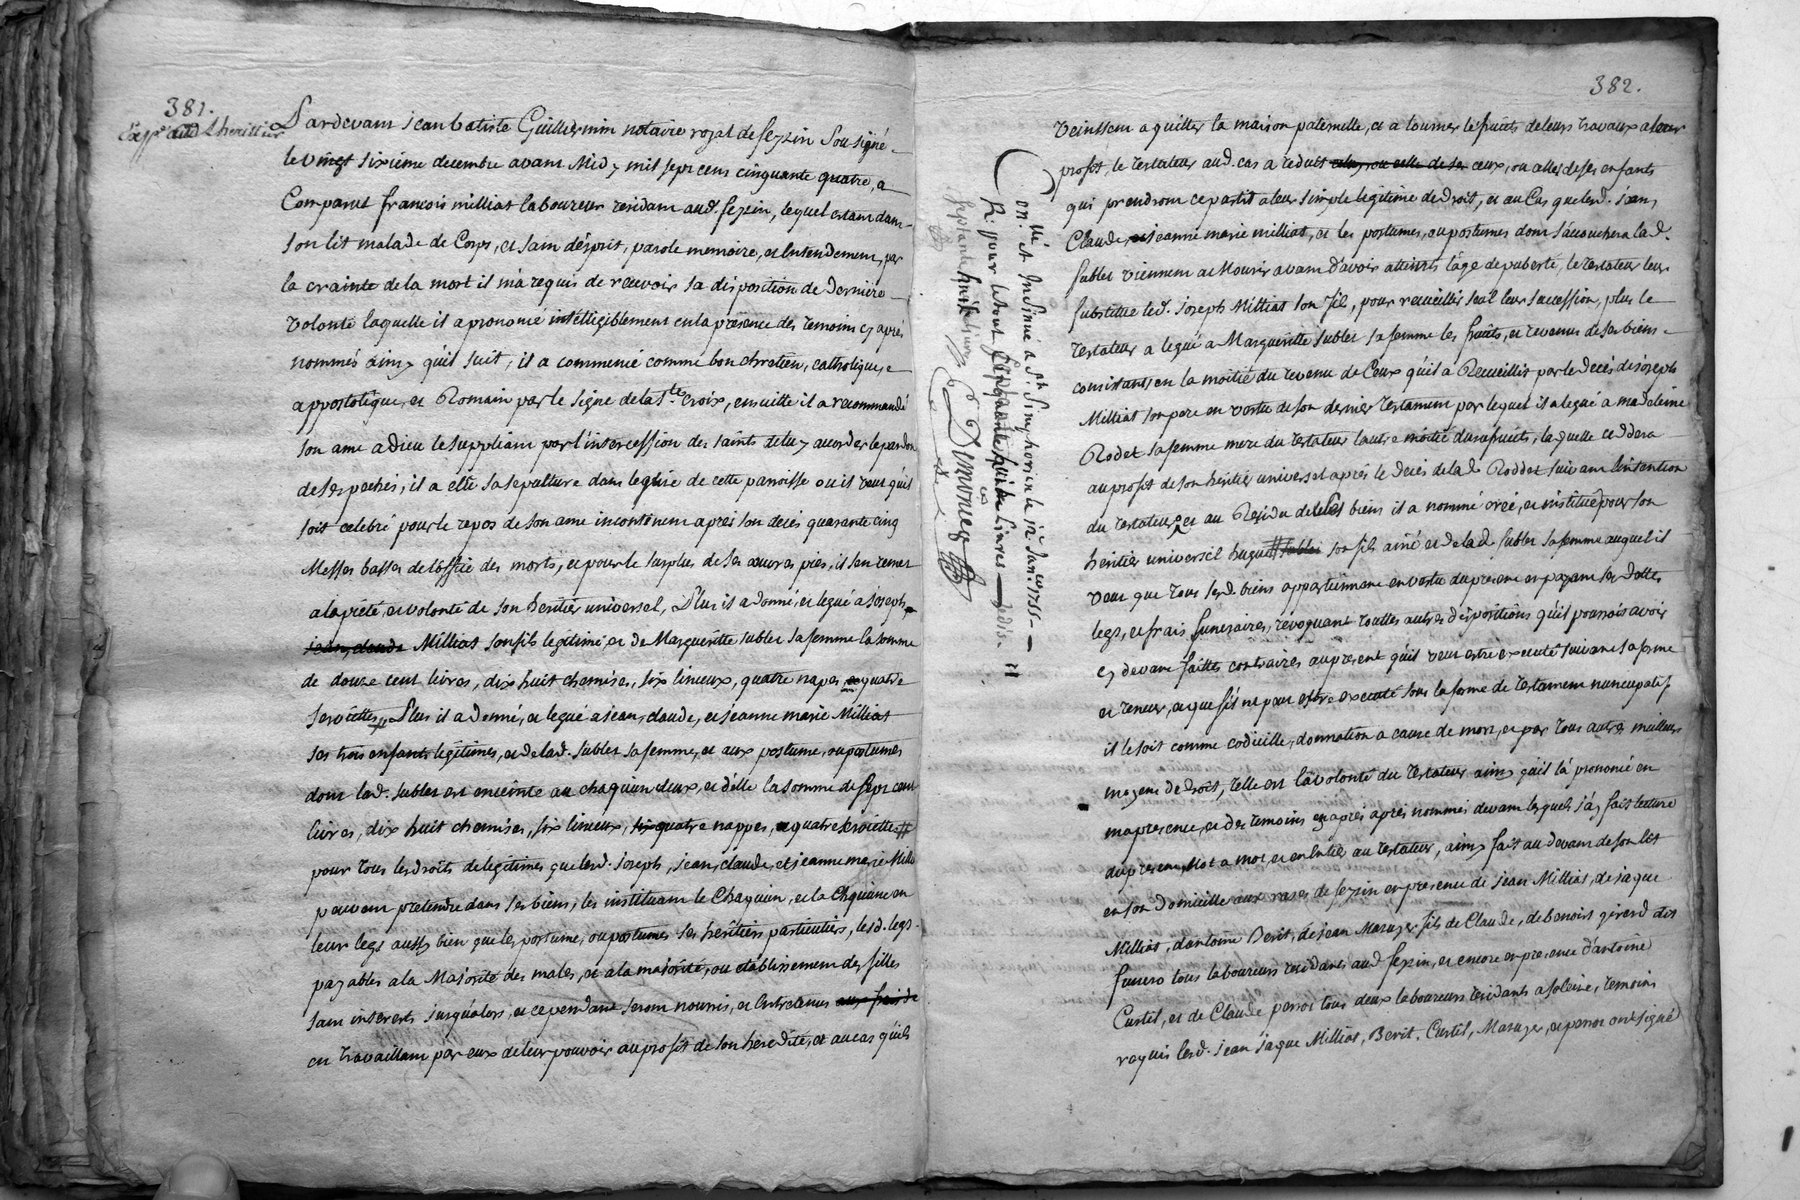 381.
Exp. aud. Lheritier
Pardevant jean batiste Guillermin notaire royal de sezin sousigné
le vingt sixième decembre avant midy mil sept cens cinquante quatre a
Comparut francois milliat laboureur residant aud. sezin, lequel estant dans
son lit malade de Corps, et sain d'esprit, parole memoire, et entendement, par
la crainte de la mort il m'a requis de recevoir sa disposition de derniere
volonté laquelle il a prononcé intelligiblement en la presence des temoins cy aprés
nommés ainsy qu'il suit, il a commencé comme bon chretien, catholique,
appostolique, et Romain par le signe de la Ste. croix, ensuitte il a recommandé
son ame a Dieu le suppliant par l'intercession des saints de luy accorder le pardon
de ses pechés, il a elû sa sepulture dans leglise de cette parroisse ou il veut qu'il
soit celebré pour le repos de son ame incontinent aprés son decés quarante cinq
Messes basses de l'office des morts, et pour le surplus de ses œuvres pies, il s'en remet
a la pieté, et volonté de son heritier universel, Plus il a donné, et legué a joseph
jean, claude Milliat son fils legitime et de Margueritte sublet sa femme la somme
de douze cent livres, dix huit chemises, six linceux, quatre napes et quatre
serviettes, Plus il a donné, et legué a jean, claude, et jeanne marie Milliat
ses trois enfants legitimes, et de lad. sublet sa femme, et aux postume, ou postumes
dont lad. sublet est enceinte au chaquun d'eux, et d'elle la somme de sept cent
livres, dix huit chemises, six linceux, six quatre nappes, et quatre serviettes #
pour tous les droits de legitimes que lesd. joseph, jean, claude, et jeanne marie Millia
peuvent pretendre dans ses biens, les instituant le Chaquun, et la Chquune en
leur legs aussy bien que les postume, ou postumes ses heritiers particuliers, lesd. legs
payables a la Majorité des males, et a la majorité, ou etablissement des filles
sans interests jusqu'alors, et cependant seront nourris, et entretenus aux frais de
en travaillant par eux de leur pouvoir au profit de son heredité, et au cas qu'ils
Con.lé et Insinué a St. Simphorien le 12e Janv. 1755
R. pour le tout septante huit livres dix s.
septante huit livres
Demours
382.
veinssent a quitter la maison paternelle, et a tourner le fruits de leurs travaux a leur
profit, le testateur aud. cas a reduit celuy ou celle de se ceux, ou celles de ses enfants
qui prendront ce partit a leur simple legitime de droit, et au Cas que lesd. jean,
Claude, et jeanne marie milliat, et les postumes, ou postumes dont s'acouchera lad.
sublet viennent a Mourir avant d'avoir atteints l'age de puberté, le testateur leur
substitue led. joseph Milliat son fil, pour recueillir seul leur succession, plus le
testateur a legué a Margueritte sublet sa femme les fruits, et revenus de ses biens
consistants en la moitié du revenu de Ceux qu'il a Recueillis par le decés de joseph
Milliat son pere en vertu de son dernier testament par lequel il a legué a madeleine
Rodet sa femme mere du testateur l'autre moitié dusufruits, laquelle ceddera
au profit de son heritier universel aprés le decés de lad. Roddet suivant l'intention
du testateur, et au Residu de ses biens il a nommé créé, et institué pour son
heritier universel hugue # sublet son fils ainé et de lad. sublet sa femme auquel il
veut que tous sesd. biens appartiennent en vertu du present en payant ses dettes
legs, et frais funeraires, revoquant touttes autres dispositions qu'il pourroit avoir
cy devant faittes contraires au present qu'il veut estre executé suivant sa forme
et teneur, et que s'il ne peut estre executé sous la forme de testament nuncupatif
il le soit comme codicille, donnation a cause de mort, et par tous autres meilleurs
moyens de droit, telle est la volonté du testateur ainsy qu'il l'a prononcé en
ma presence, et des temoins cy aprés aprés nommés devant lesquels j'ay fait lecture
du present, Mot a mot, et en Entier au testateur, ainsy fait au devant de son lit
en son domicille aux rases de sezin en presence de jean Milliat, de jaque
Milliat, dantoine Berit, de jean Mazuyer fils de Claude, de benoist girerd dit
tous laboureurs residants aud. sezin, et encore en presence d'antoine
Curtil, et de Claude perrot tous deux laboureurs residants a solaise, temoins
requis lesd. jean jaque Milliat, Berit, Curtil, Mazuyer, et perrot ont signé